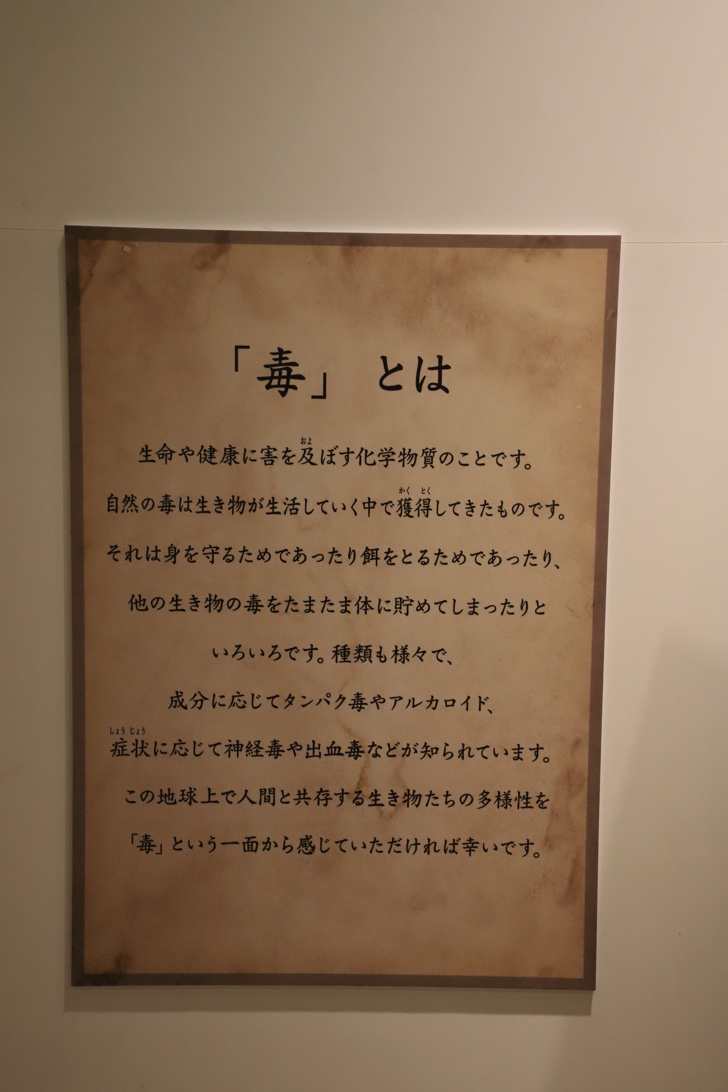 「毒」 とは
生命や健康に害を及ぼす化学物質のことです。
自然の毒は生き物が生活していく中で獲得してきたものです。
それは身を守るためであったり餌をとるためであったり、
他の生き物の毒をたまたま体に貯めてしまったりと
いろいろです。種類も様々で、
成分に応じてタンパク毒やアルカロイド、
症状に応じて神経毒や出血毒などが知られています。
この地球上で人間と共存する生き物たちの多様性を
「毒」という一面から感じていただければ幸いです。